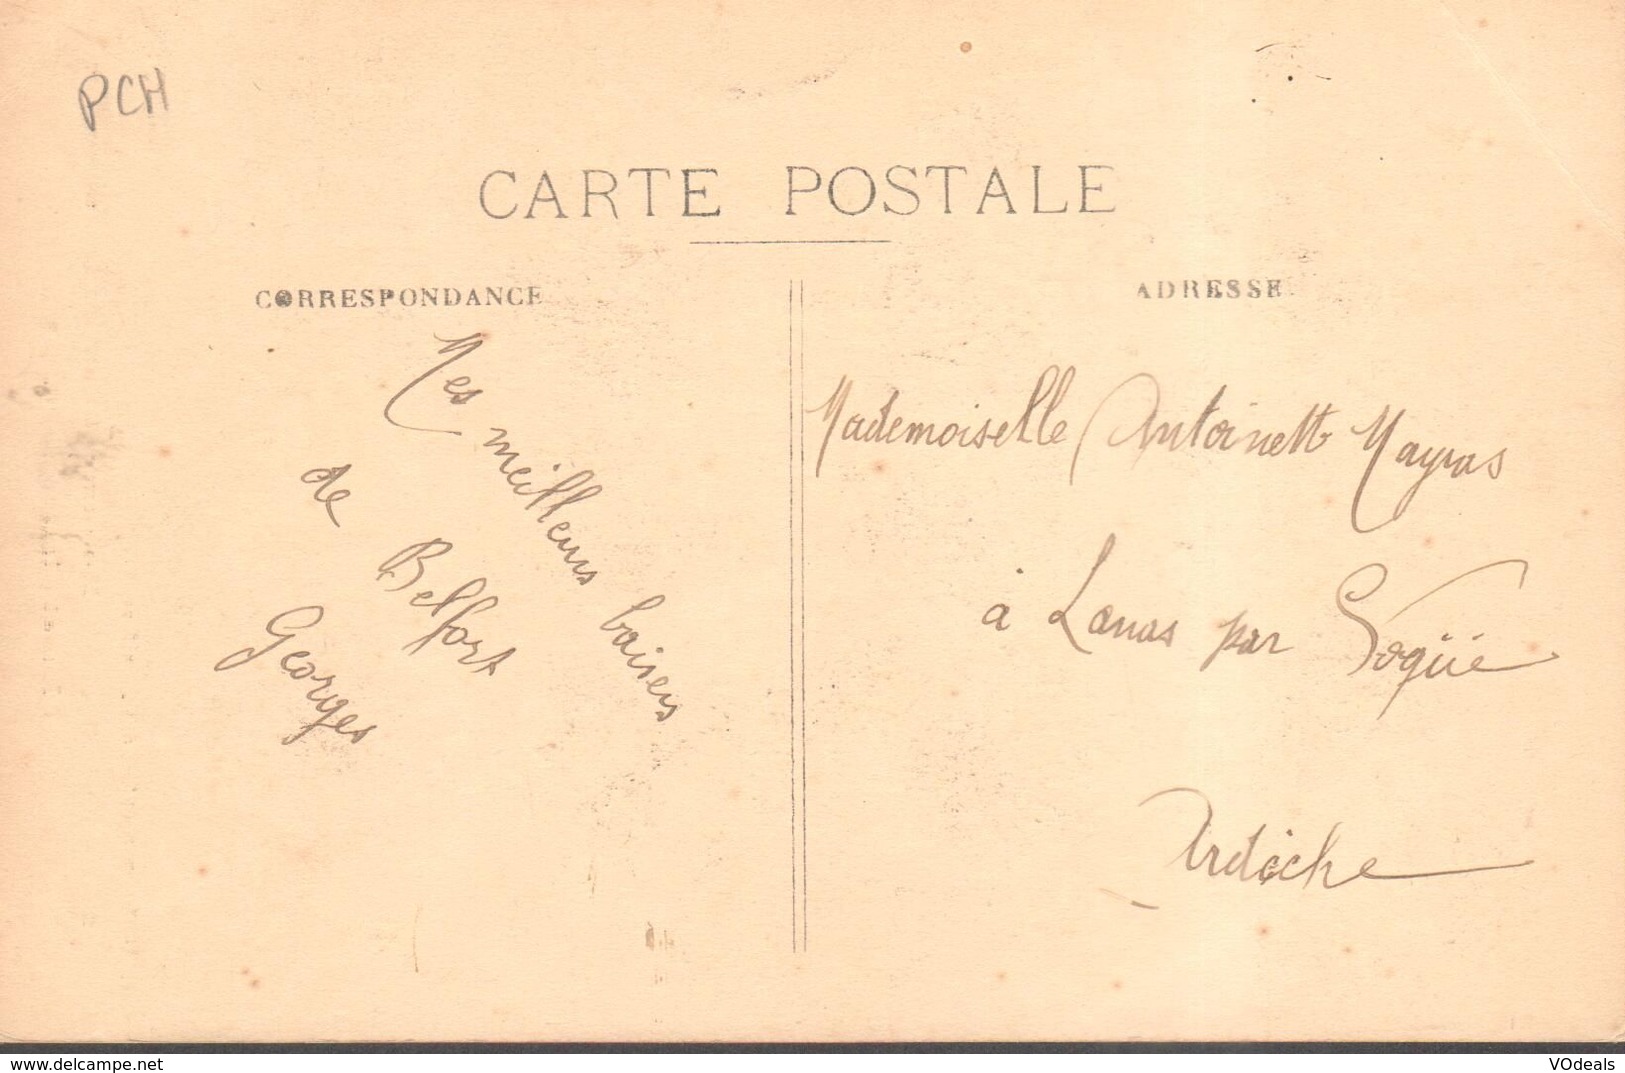 PCH
CARTE POSTALE
CORRESPONDANCE
Mes meilleurs baisers
de Belfort
Georges
ADRESSE
Mademoiselle Antoinette Mayras
à Lanas par Vogüé
Ardèche
www.delcampe.net
VOdeals